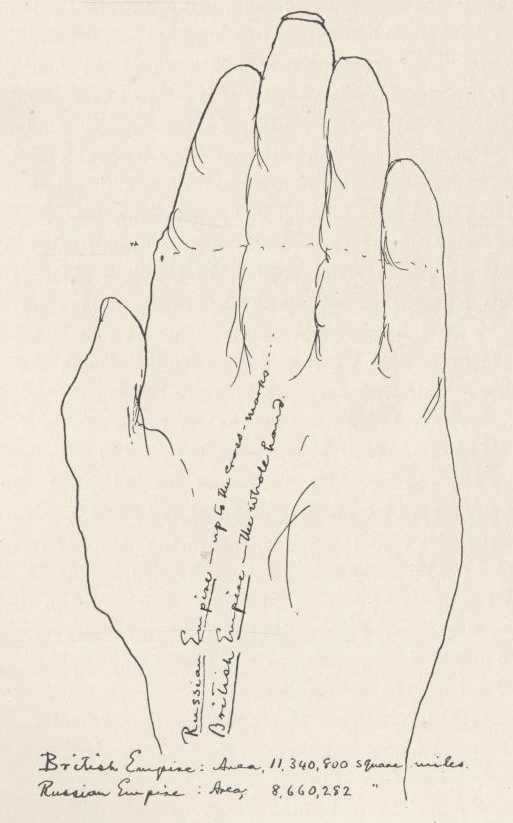 Russian Empire — up to the cross-marks....
British Empire — the whole hand.
British Empire: Area, 11,340,800 square miles.
Russian Empire : Area, 8,660,282 "